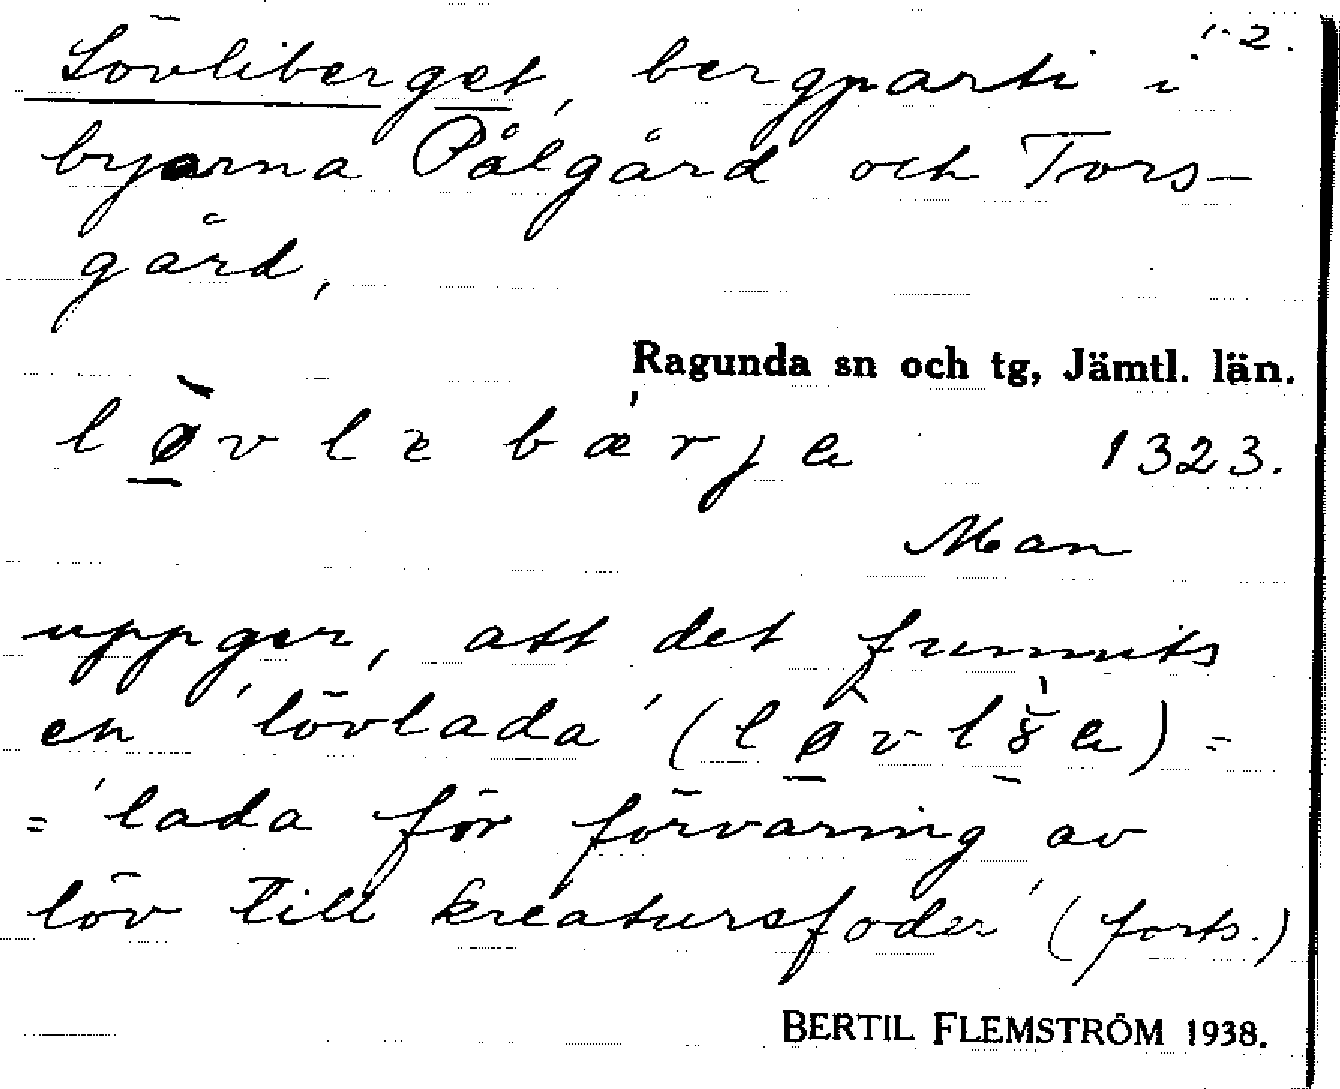 1-2.
Lövliberget, bergparti i
byarna Pålgård och Tors-
gård,
Ragunda sn och tg, Jämtl. län.
1323.
Man
uppger, att det funnits
en 'lövlada'
= 'lada för förvaring av
löv till kreatursfoder' (forts.)
BERTIL FLEMSTRÖM 1938.